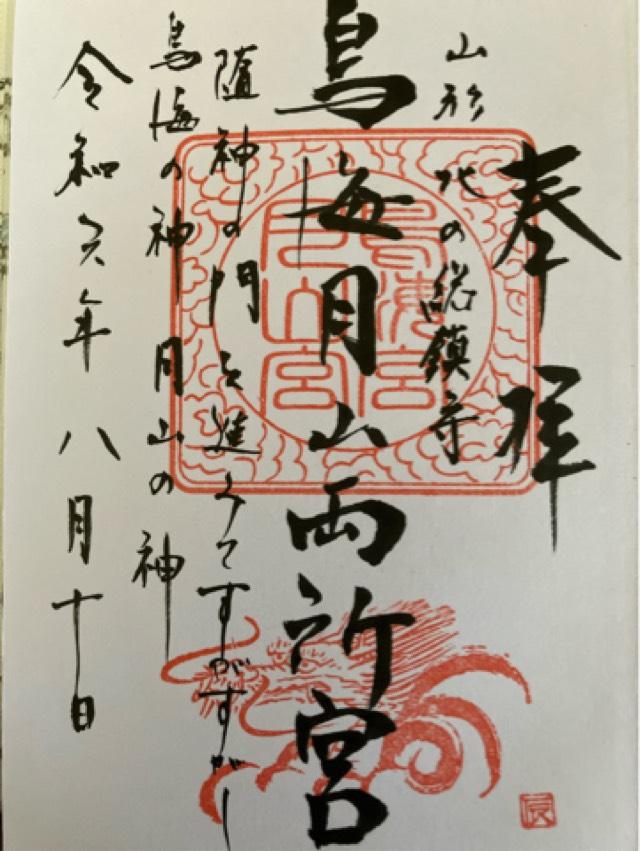 奉拝
山形北の総鎮守
鳥海月山両所宮
鳥海宮
月山宮
随神の門を進みてすがすがし
鳥海の神月山の神
令和六年八月十日
辰